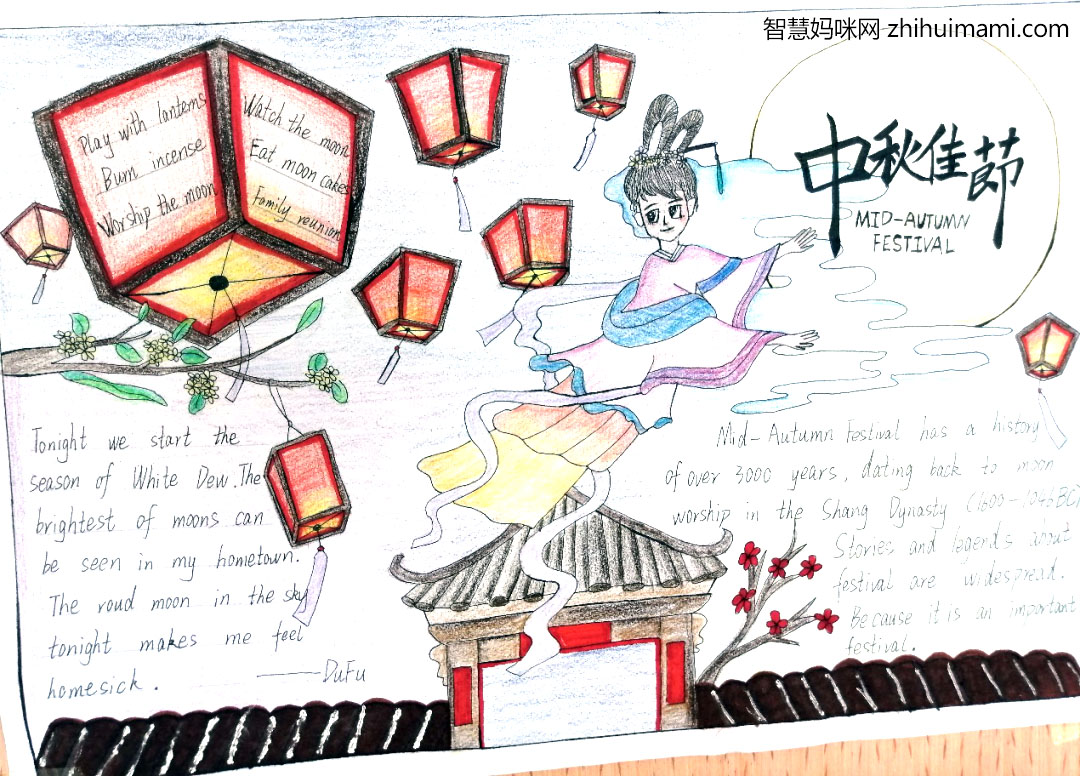 智慧妈咪网-zhihuimami.com
Play with lanterns
Burn incense
Worship the moon
Watch the moon
Eat moon cakes
Family reunion
中秋佳節
MID-AUTUMN
FESTIVAL
Tonight we start the
season of White Dew.The
brightest of moons can
be seen in my hometown.
The roud moon in the sky
tonight makes me feel
homesick.
——DuFu
Mid-Autumn Festival has a history
of over 3000 years, dating back to moon
worship in the Shang Dynasty (1600-1046BC)
Stories and legends about
festival are widespread.
Because it is an important
festival.